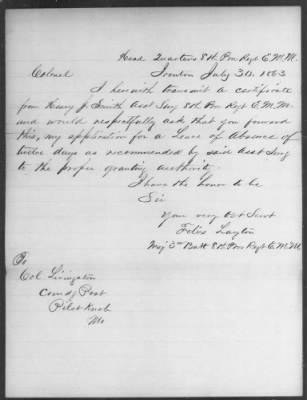 Head Quarters 8th Pro Regt E.M.M.
Ironton July 30. 1863
Colonel
I herewith transmit a certificate
from Henry J. Smith Asst Surg 8th Pro Regt E.M.M.
and would respectfully ask that you forward
this, my application for a Leave of Absence of
twelve days as recommended by said Asst Surg
to the proper granting authority.
I have the honor to be
Sir
Your very obt Servt
Felix Layton
Maj 3rd Batt 8th Pro Regt E.M.M.
To
Col Livingston
Comdg Post
Pilot Knob
Mo